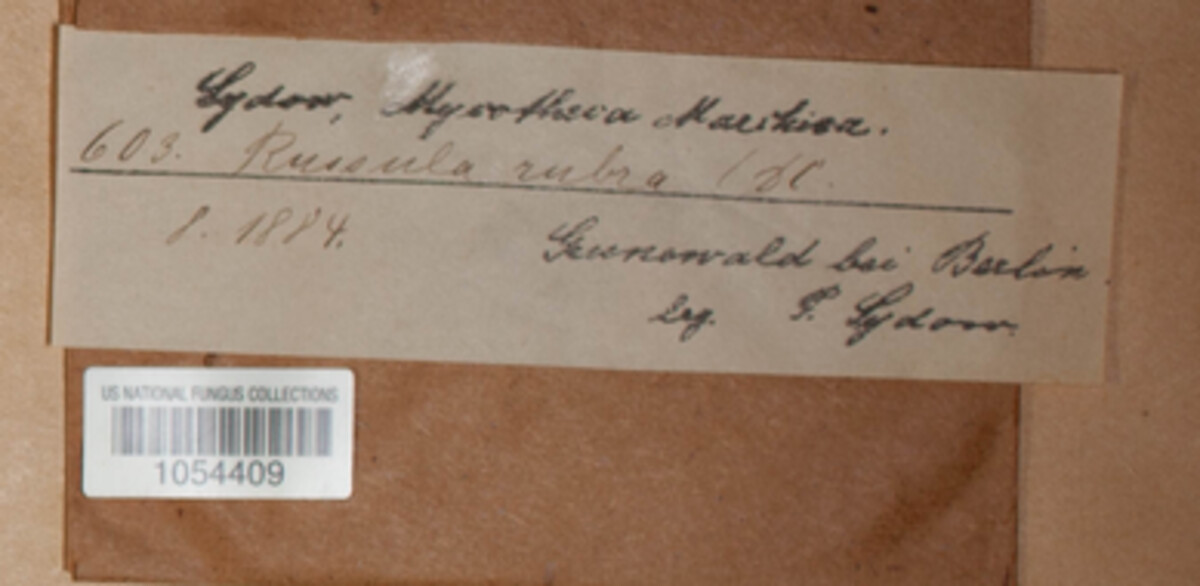 Sydow, Mycotheca Marchica.
603. Russula rubra (DC.
8. 1884.
Grunewald bei Berlin.
leg. P. Sydow.
US NATIONAL FUNGUS COLLECTIONS
1054409